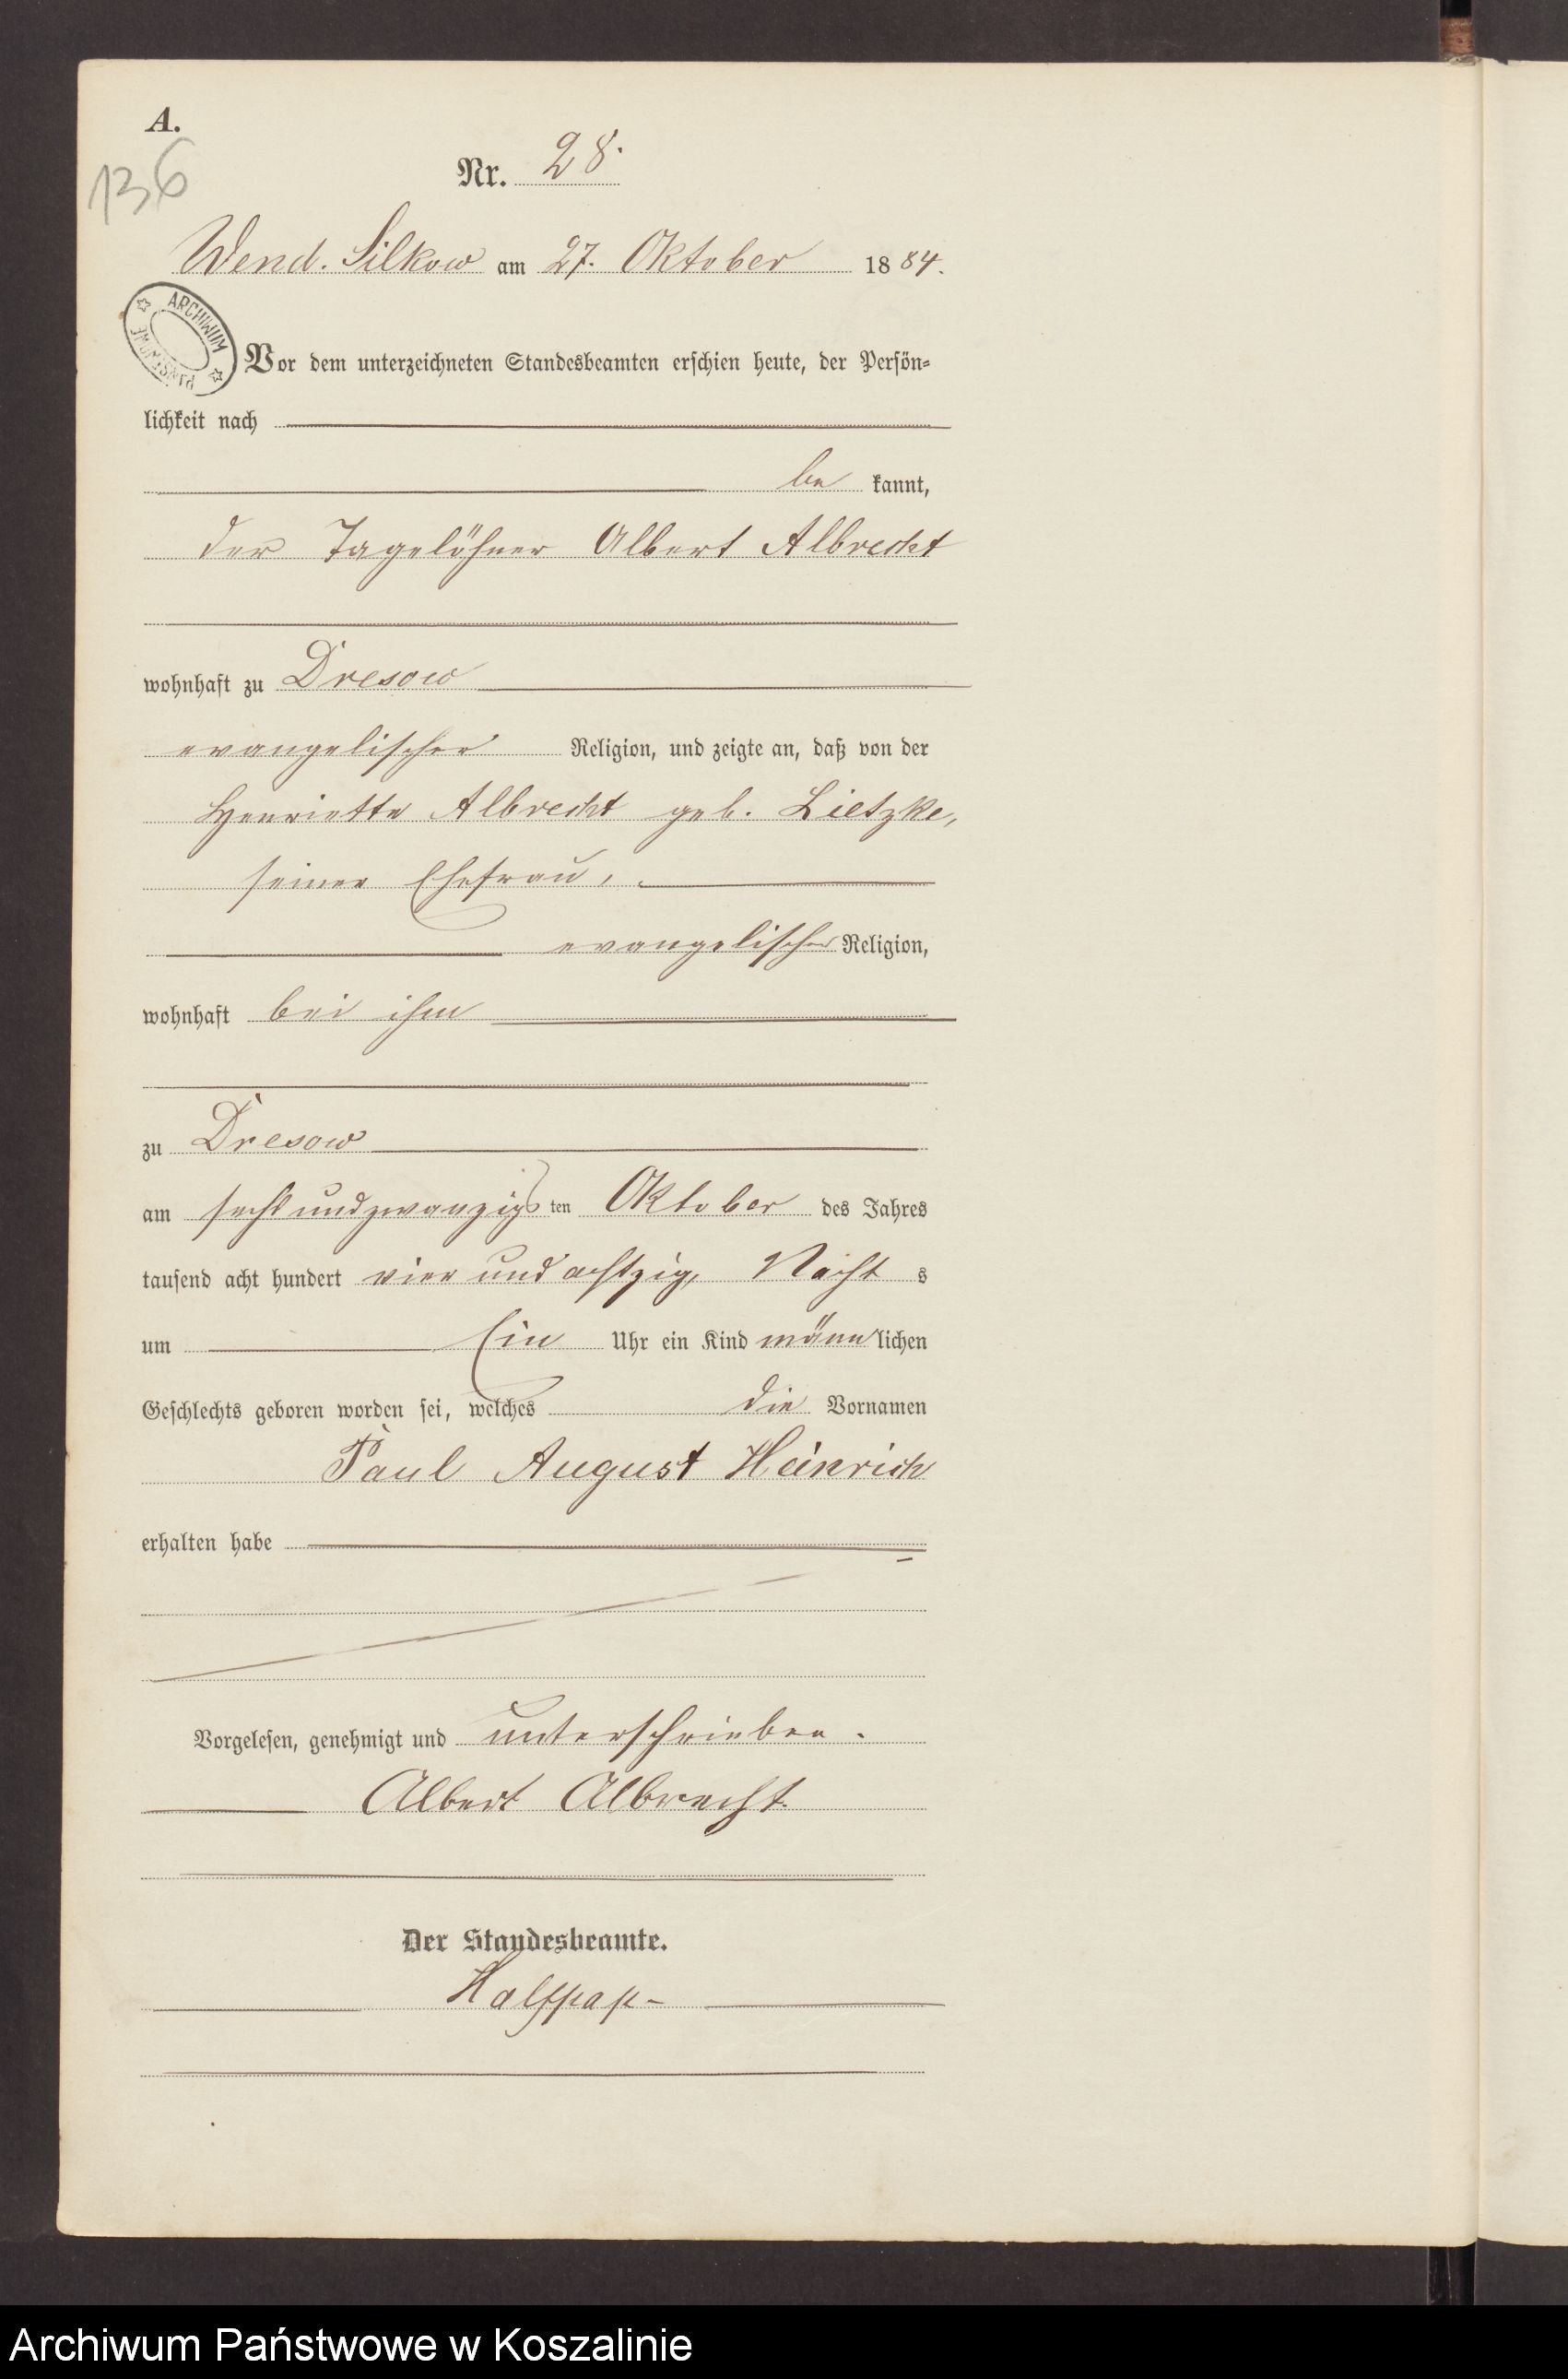 A.
136
Nr. 28.
Wend. Silkow am 27. Oktober 1884.
ARCHIWUM PAŃSTWOWE
Vor dem unterzeichneten Standesbeamten erschien heute, der Persön-
lichkeit nach
be kannt,
der Tagelöhner Albert Albrecht
wohnhaft zu Dresow
evangelischer Religion, und zeigte an, daß von der
Henriette Albrecht geb. Lietzke,
seiner Ehefrau,
evangelischer Religion,
wohnhaft bei ihm
zu Dresow
am sechs und zwanzigsten Oktober des Jahres
tausend acht hundert vier und achtzig, Nachts
um Ein Uhr ein Kind männlichen
Geschlechts geboren worden sei, welches die Vornamen
Paul August Heinrich
erhalten habe
Vorgelesen, genehmigt und unterschrieben.
Albert Albrecht.
Der Standesbeamte.
Halfpap
Archiwum Państwowe w Koszalinie